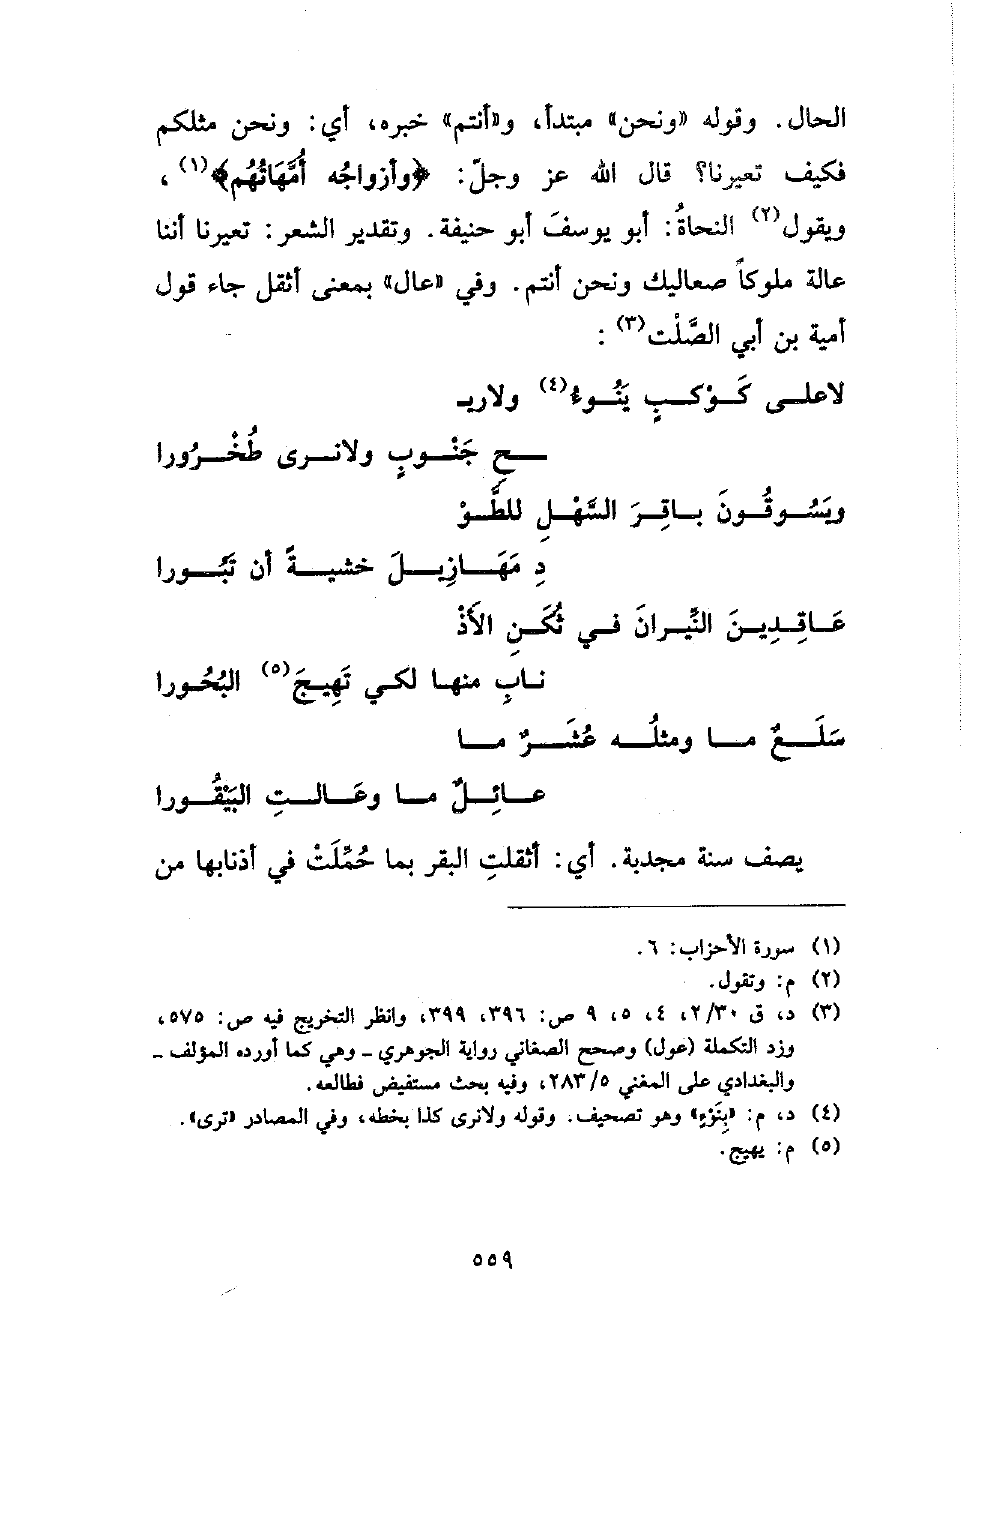 الحال. وقوله «ونحن» مبتدأ، و«أنتم» خبره، أي: ونحن مثلكم
فكيف تعيرنا؟ قال الله عز وجلّ: ﴿وأزواجُه أُمَّهَاتُهُم﴾(١)،
ويقول(٢) النحاةُ: أبو يوسفَ أبو حنيفة. وتقدير الشعر: تعيرنا أننا
عالة ملوكاً صعاليك ونحن أنتم. وفي «عال» بمعنى أثقل جاء قول
أمية بن أبي الصَّلْت(٣):
لاعلى كَوْكبٍ يَنُوءُ(٤) ولاريـ
ـحِ جَنُوبٍ ولانرى طُخْرُورا
ويَسُوقُونَ باقِرَ السَّهْلِ للطَّوْ
دِ مَهَازِيلَ خشيةً أن تَبُورا
عَاقِدِينَ النِّيرانَ في ثُكَنِ الأَذْ
نابِ منها لكي تَهِيجَ(٥) البُحُورا
سَلَعٌ ما ومثلُه عُشَرٌ ما
عائِلٌ ما وعَالتِ البَيْقُورا
يصف سنة مجدبة. أي: أثقلتِ البقر بما حُمِّلَتْ في أذنابها من
(١) سورة الأحزاب: ٦.
(٢) م: وتقول.
(٣) د، ق ٢/٣٠، ٤، ٥، ٩ ص: ٣٩٦، ٣٩٩، وانظر التخريج فيه ص: ٥٧٥،
وزد التكملة (عول) وصحح الصغاني رواية الجوهري ـ وهي كما أورده المؤلف ـ
والبغدادي على المغني ٢٨٣/٥، وفيه بحث مستفيض فطالعه.
(٤) د، م: «بِنَوْءٍ» وهو تصحيف. وقوله ولانرى كذا بخطه، وفي المصادر «ترى».
(٥) م: يهيج.
٥٥٩